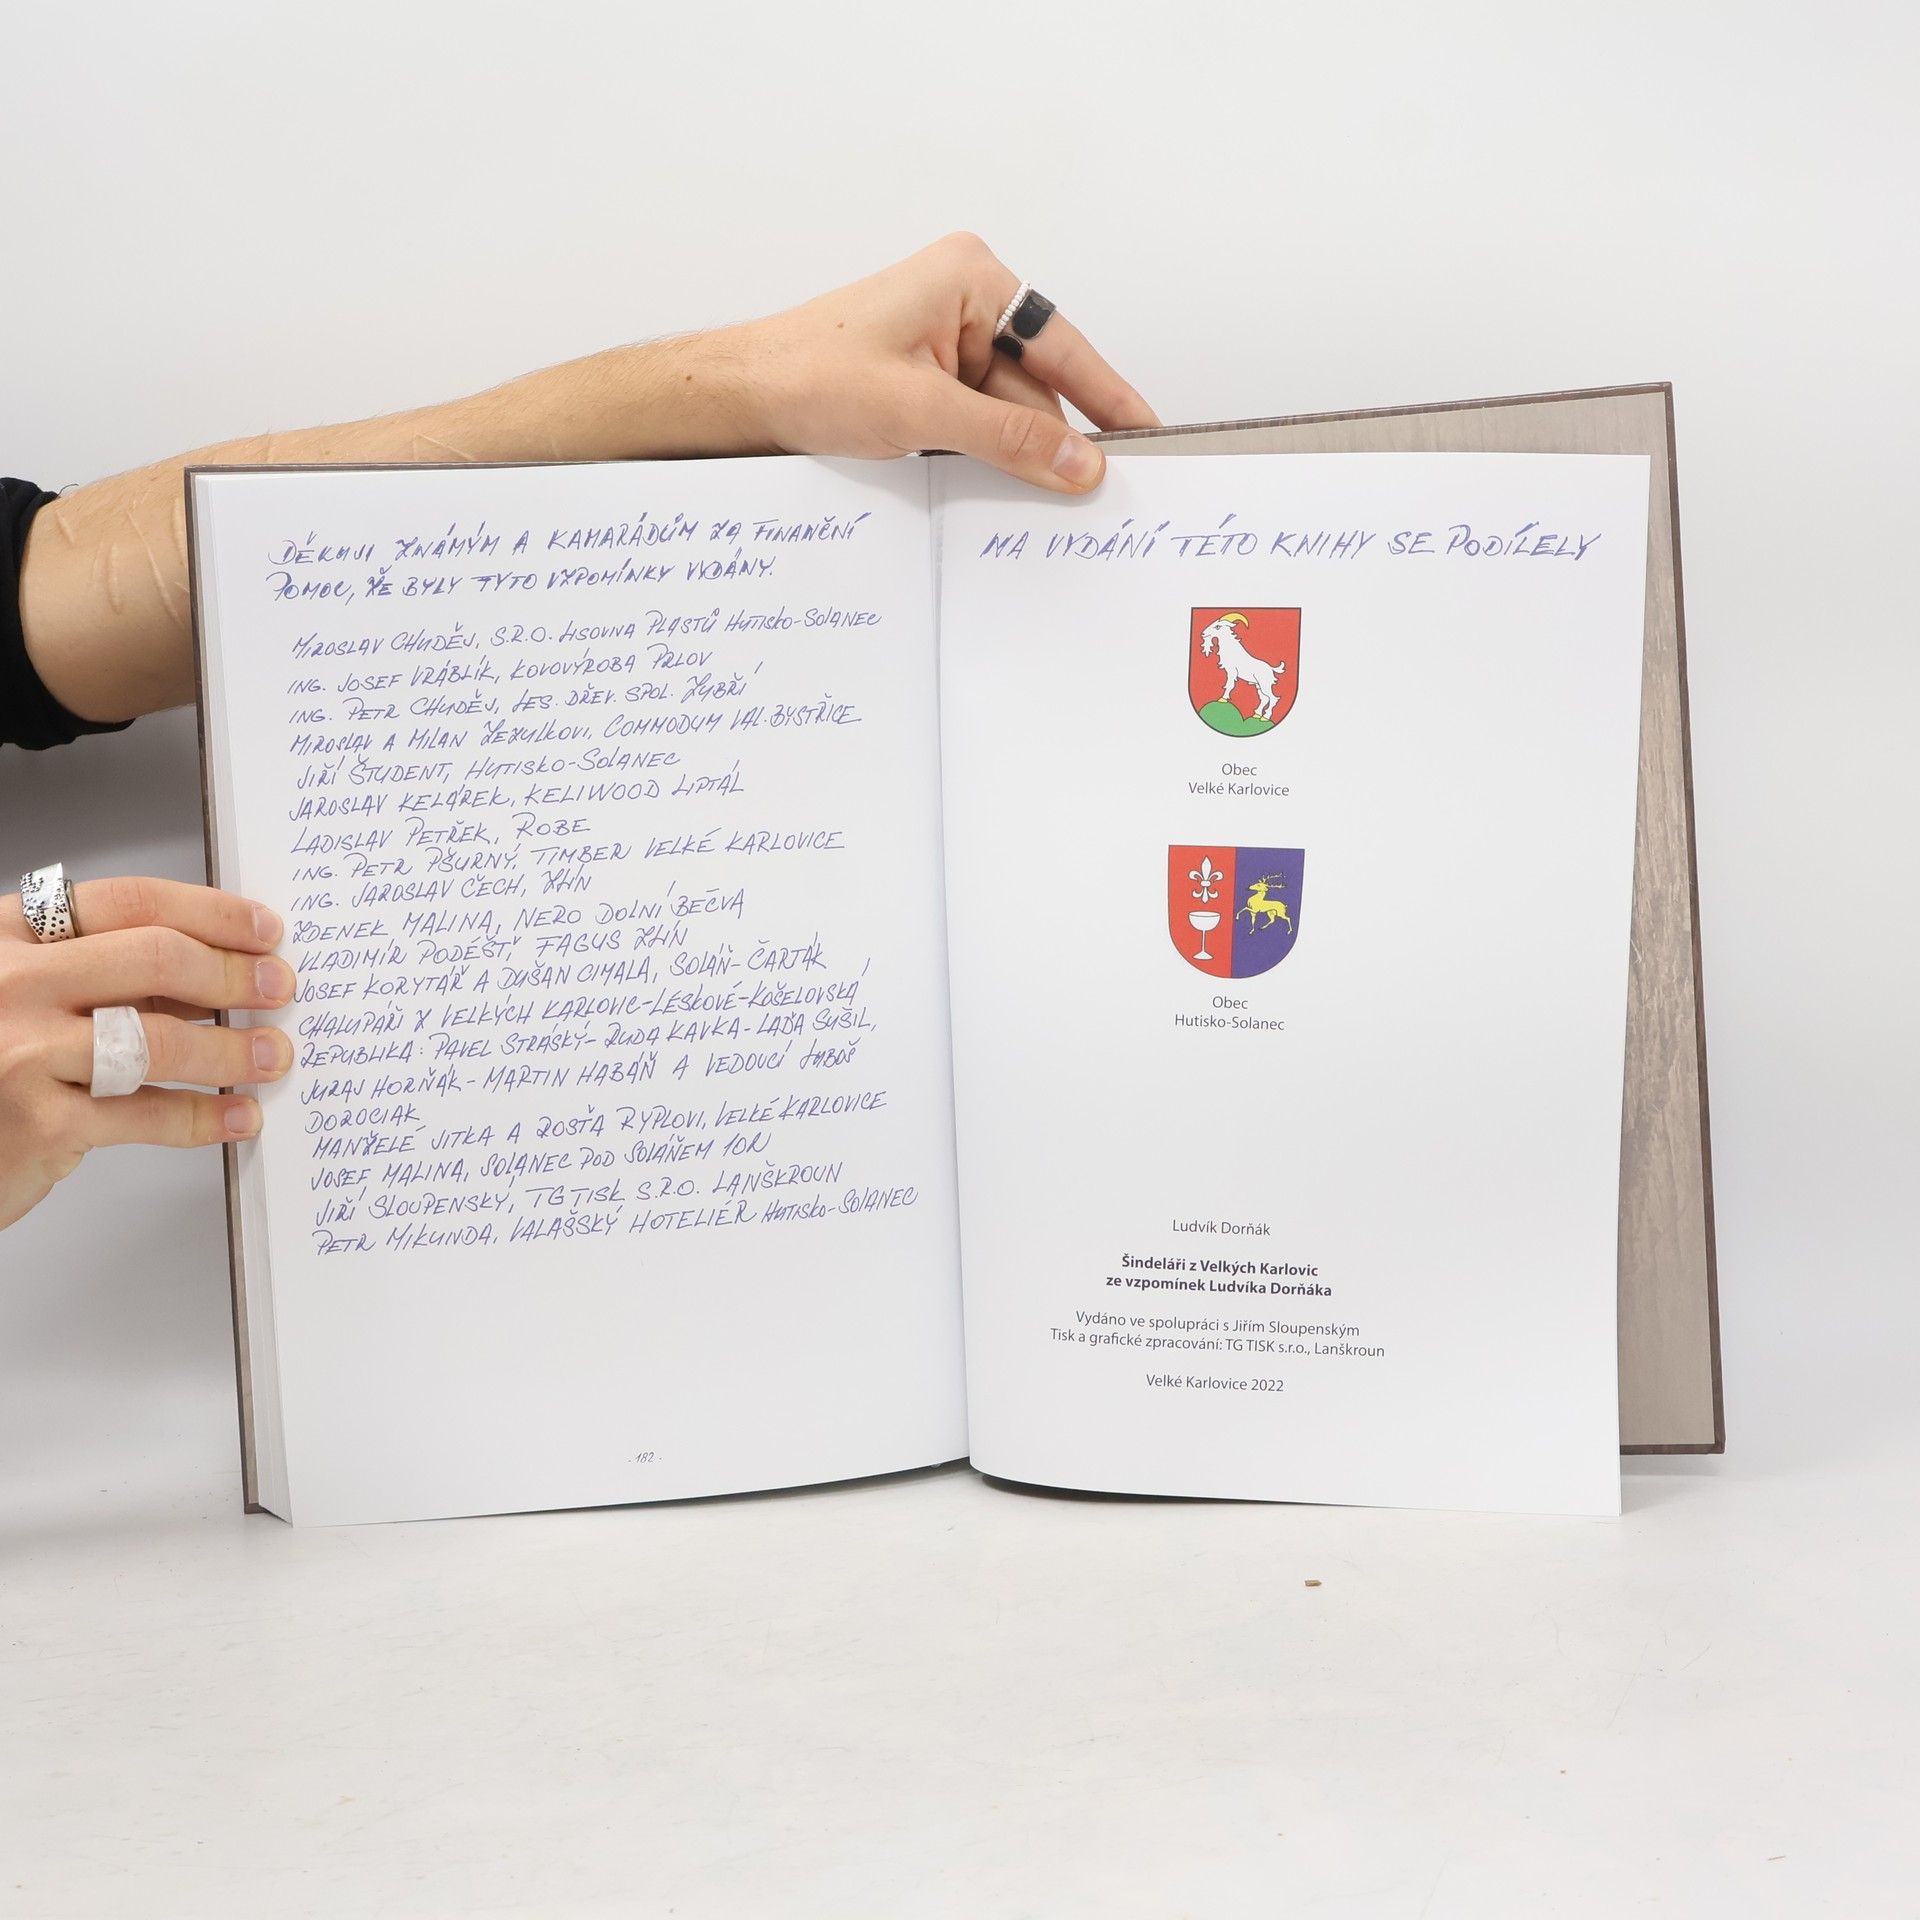 DĚKUJI ZNÁMÝM A KAMARÁDŮM ZA FINANČNÍ
POMOC, ŽE BYLY TYTO VZPOMÍNKY VYDÁNY.
MIROSLAV CHUDĚJ, S.R.O. LISOVNA PLASTŮ HUTISKO-SOLANEC
ING. JOSEF VRÁBLÍK, KOVOVÝROBA PRLOV
ING. PETR CHUDĚJ, LES. DŘEV. SPOL. ZUBŘÍ
MIROSLAV A MILAN ZEZULKOVI, COMMODUM VAL. BYSTŘICE
JIŘÍ ŠTUDENT, HUTISKO-SOLANEC
JAROSLAV KELÁREK, KELIWOOD LIPTÁL
LADISLAV PETŘEK, ROBE
ING. PETR PŠURNÝ, TIMBER VELKÉ KARLOVICE
ING. JAROSLAV ČECH, ZLÍN
ZDENEK MALINA, NERO DOLNÍ BEČVA
VLADIMÍR PODÉŠŤ, FAGUS ZLÍN
JOSEF KORYTÁŘ A DUŠAN CIMALA, SOLÁŇ-ČARTÁK
CHALUPÁŘI Z VELKÝCH KARLOVIC-LÉSKOVÉ-KOŠELOVSKÁ
REPUBLIKA: PAVEL STRÁSKÝ-RUDA KAVKA-LAĎA SUŠIL,
JURAJ HORŇÁK-MARTIN HABÁŇ A VEDOUCÍ LUBOŠ
DOROCIAK
MANŽELÉ JITKA A ROSŤA RYPLOVI, VELKÉ KARLOVICE
JOSEF MALINA, SOLANEC POD SOLÁNĚM
JIŘÍ SLOUPENSKÝ, TG TISK S.R.O. LANŠKROUN
PETR MIKUNDA, VALAŠSKÝ HOTELIÉR HUTISKO-SOLANEC
- 182 -
NA VYDÁNÍ TÉTO KNIHY SE PODÍLELY
Obec
Velké Karlovice
Obec
Hutisko-Solanec
Ludvík Dorňák
Šindeláři z Velkých Karlovic
ze vzpomínek Ludvíka Dorňáka
Vydáno ve spolupráci s Jiřím Sloupenským
Tisk a grafické zpracování: TG TISK s.r.o., Lanškroun
Velké Karlovice 2022